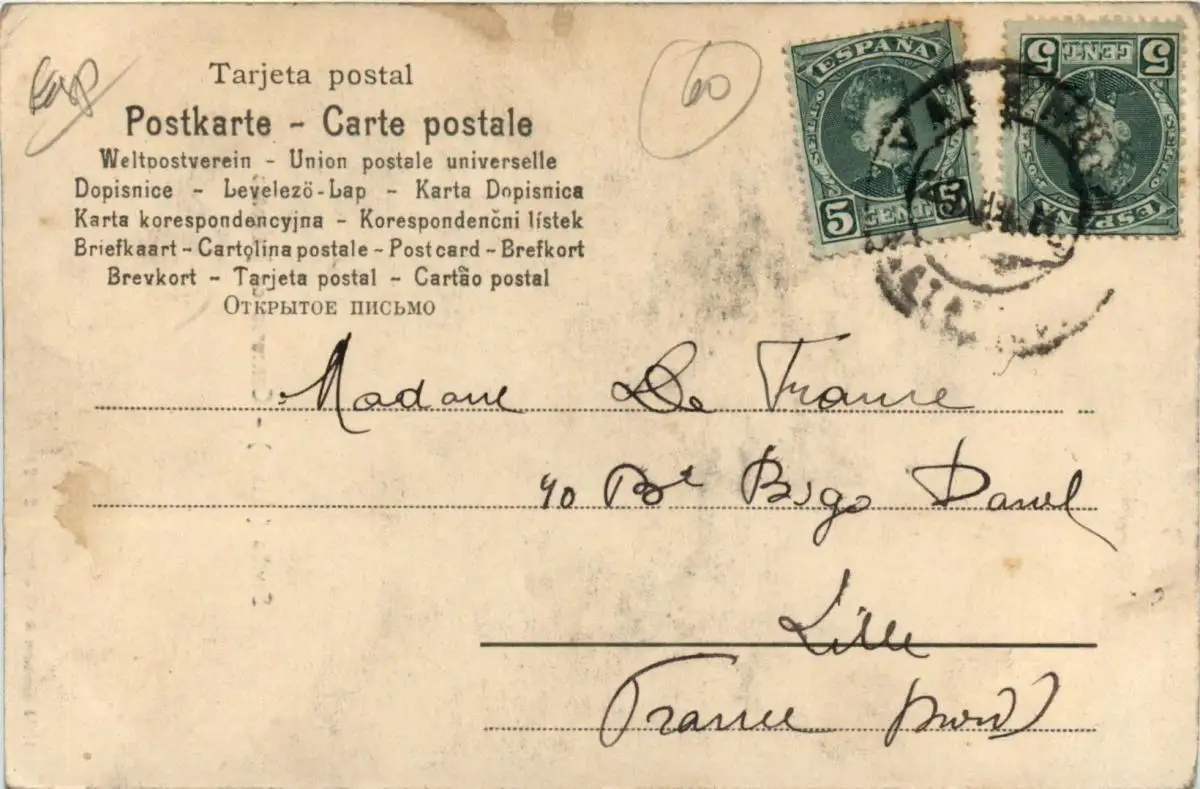 Esp
60
Tarjeta postal
Postkarte - Carte postale
Weltpostverein - Union postale universelle
Dopisnice - Levelezö-Lap - Karta Dopisnica
Karta korespondencyjna - Korespondenčni lístek
Briefkaart - Cartolina postale - Postcard - Brefkort
Brevkort - Tarjeta postal - Cartão postal
Открытое письмо
ESPAÑA
5 CENT. 5
5 CENT 5
ESPAÑA
Madame De France
40 Bd Bigo Danel
Lille
France Nord